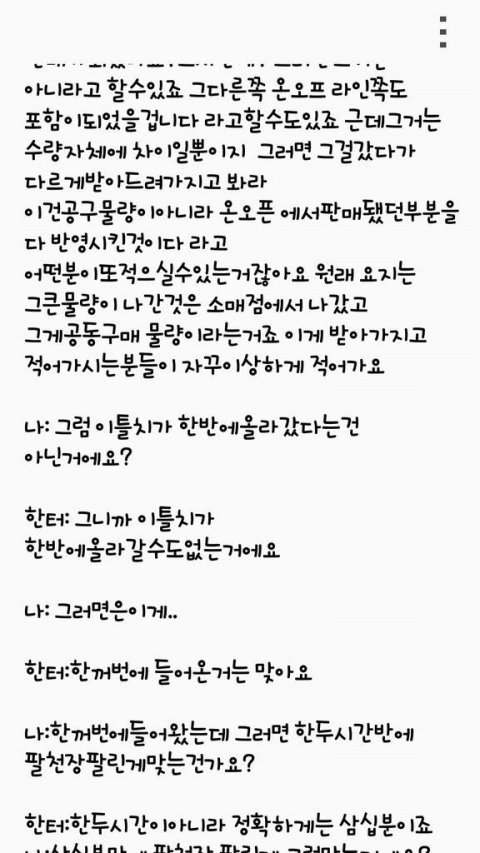 아니라고 할수있죠 그다른쪽 온오프 라인쪽도
포함이되었을겁니다 라고할수도있죠 근데그거는
수량자체에 차이일뿐이지 그러면 그걸갔다가
다르게받아드려가지고 봐라
이건공구물량이아니라 온오픈 에서판매됐던부분을
다 반영시킨것이다 라고
어떤분이또적으실수있는거잖아요 원래 요지는
그큰물량이 나간것은 소매점에서 나갔고
그게공동구매 물량이라는거죠 이게 받아가지고
적어가시는분들이 자꾸이상하게 적어가요
나: 그럼 이틀치가 한반에올라갔다는건
아닌거에요?
한터: 그니까 이틀치가
한반에올라갈수도없는거에요
나: 그러면은이게..
한터:한꺼번에 들어온거는 맞아요
나:한꺼번에들어왔는데 그러면 한두시간반에
팔천장팔린게맞는건가요?
한터:한두시간이아니라 정확하게는 삼십분이죠